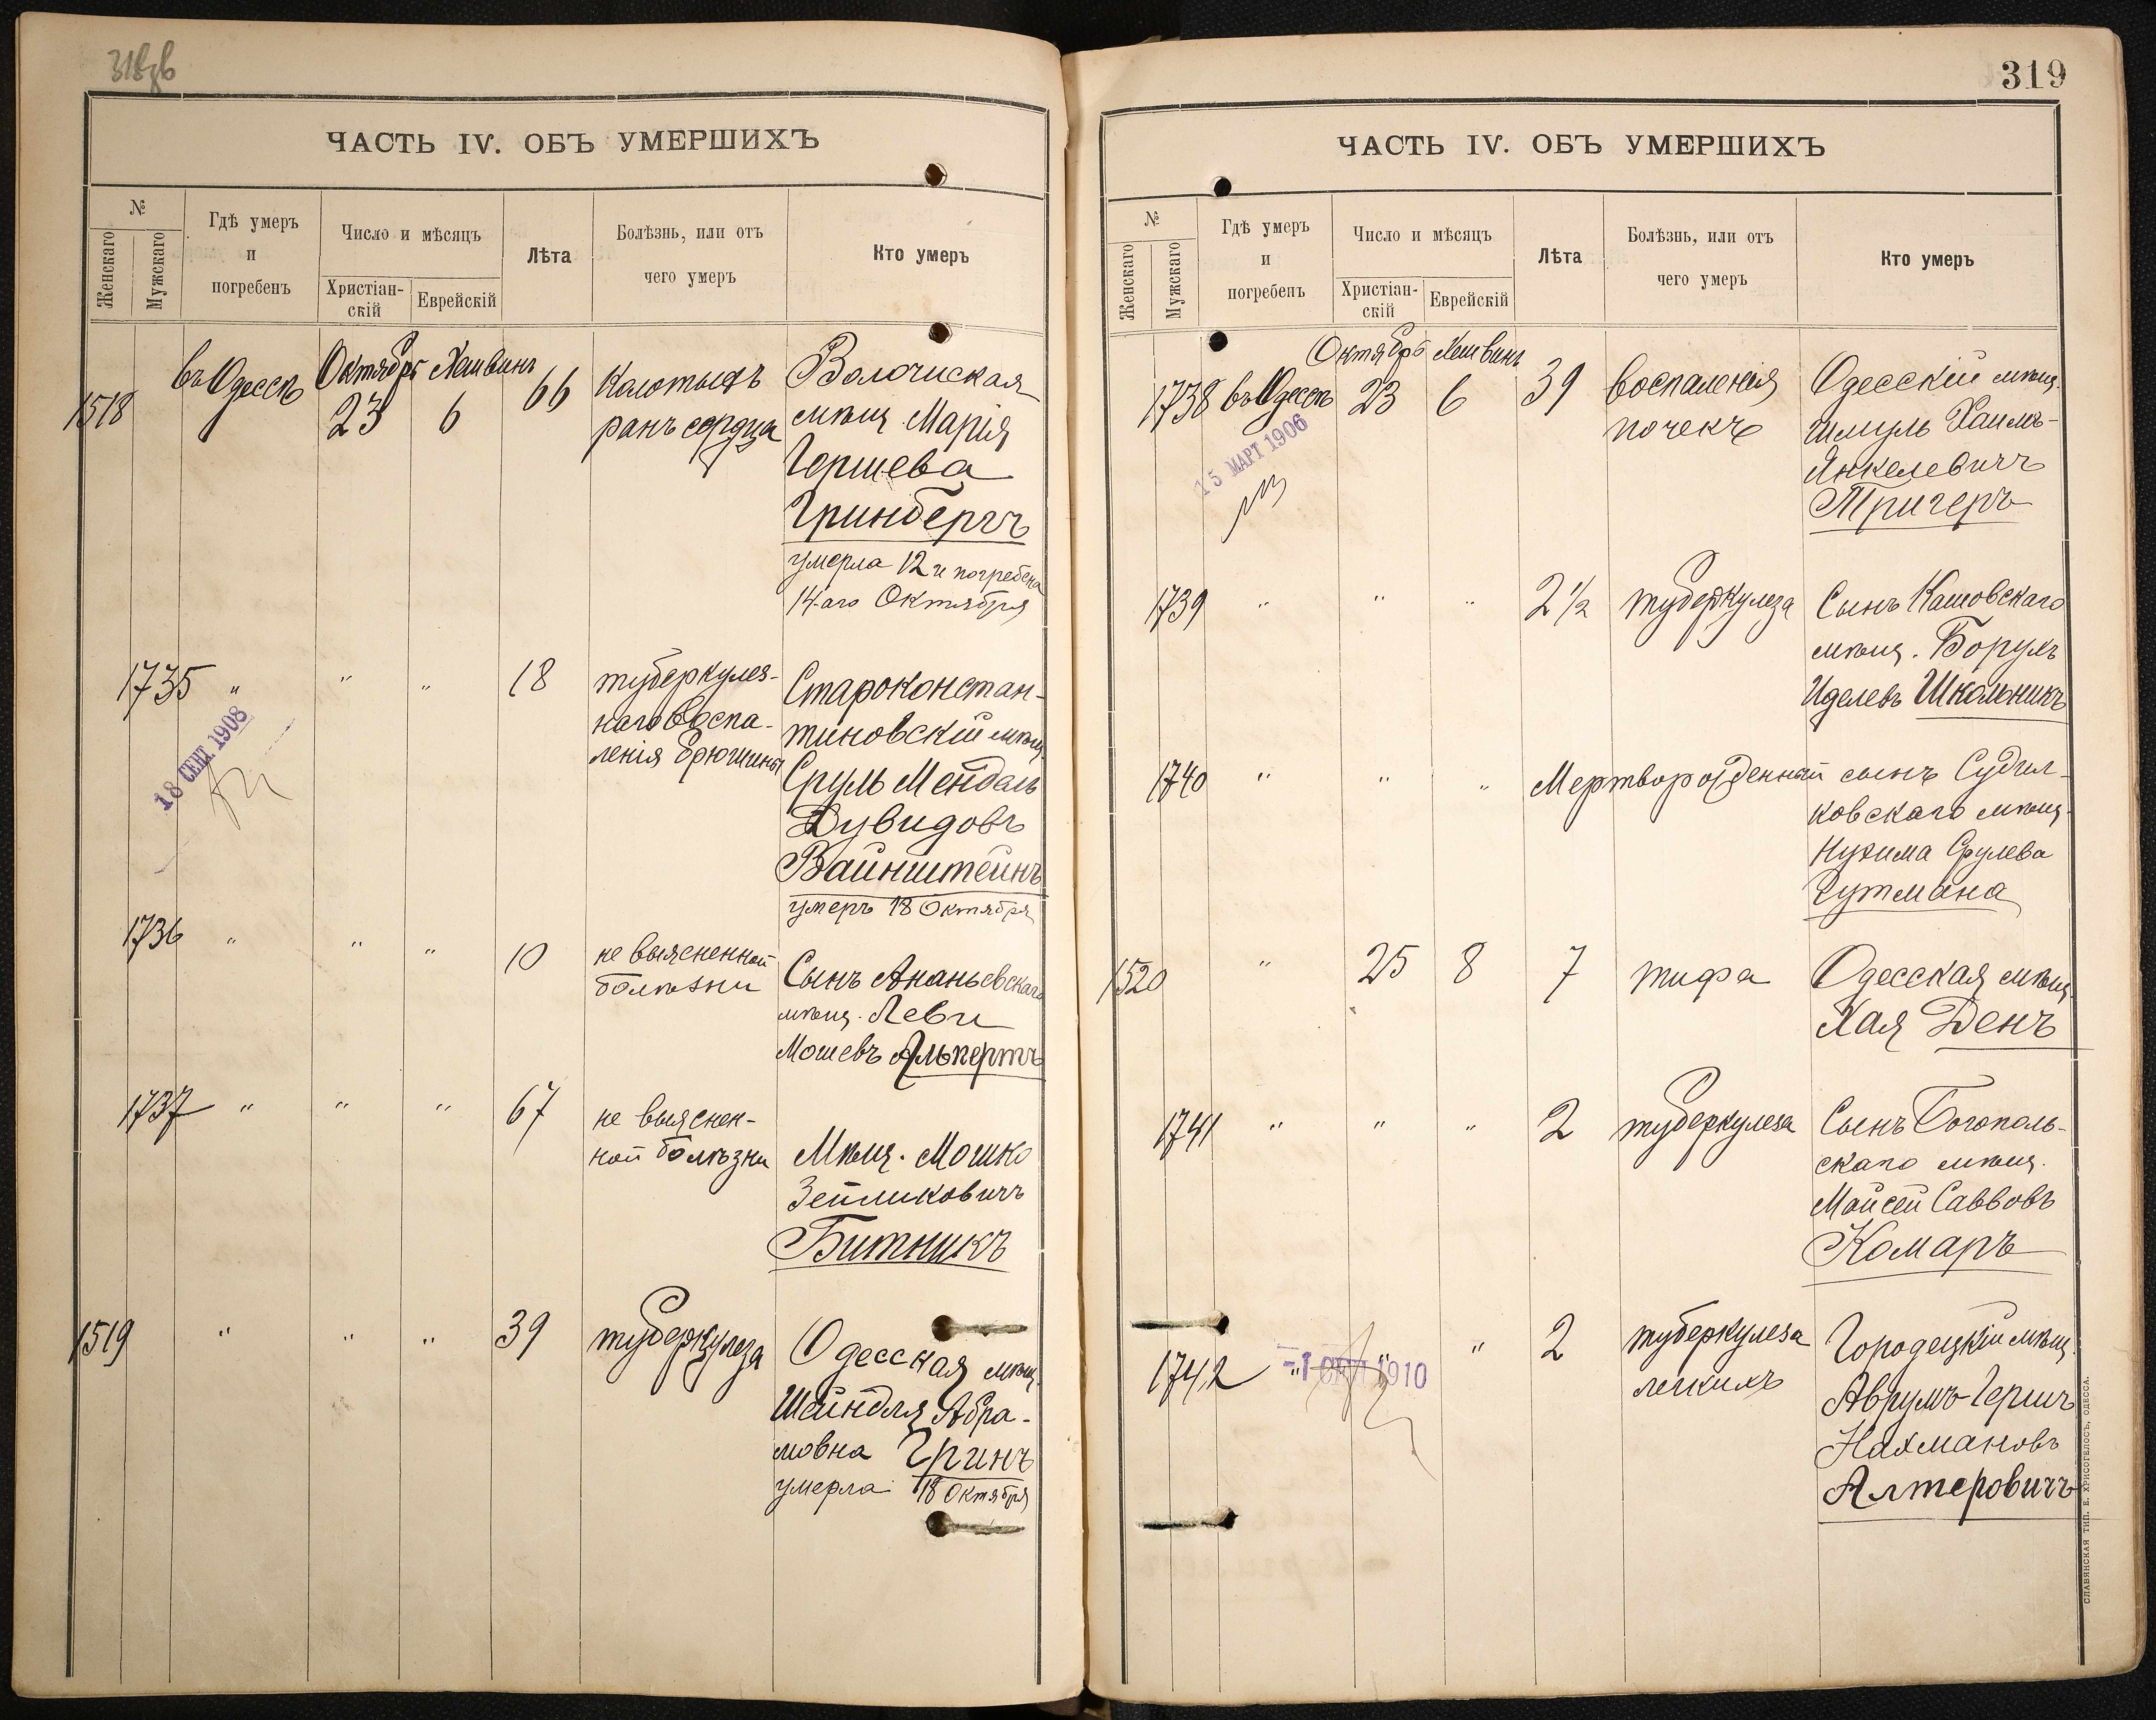 318об
ЧАСТЬ IV. ОБЪ УМЕРШИХЪ
№
Женскаго
Мужскаго
Гдѣ умеръ
и
погребенъ
Число и мѣсяцъ
Христіан-
скій
Еврейскій
Лѣта
Болѣзнь, или отъ
чего умеръ
Кто умеръ
1518
въ Одессѣ
Октябрь
23
Хешвинъ
6
66
Колотыхъ
ранъ сердца
Волочиская
мѣщ. Марія
Гершева
Гринбергъ
умерла 12 и погребена
14-аго Октября
1735
"
"
"
18
туберкулез-
наго воспа-
ленія брюшины
Староконстан-
тиновскій мѣщ.
Сруль Мендель
Дувидовъ
Вайнштейнъ
умеръ 18 Октября
18 СЕНТ 1908
1736
"
"
"
10
не выясненной
болѣзни
Сынъ Ананьевскаго
мѣщ. Леви
Мошевъ Альпертъ
1737
"
"
"
67
не выяснен-
ной болѣзни
Мѣщ. Мошко
Зейликовичъ
Битникъ
1519
"
"
"
39
туберкулеза
Одесская мѣщ.
Шейндля Абра-
мовна Гринъ
умерла 18 Октября
319
ЧАСТЬ IV. ОБЪ УМЕРШИХЪ
№
Женскаго
Мужскаго
Гдѣ умеръ
и
погребенъ
Число и мѣсяцъ
Христіан-
скій
Еврейскій
Лѣта
Болѣзнь, или отъ
чего умеръ
Кто умеръ
1738
въ Одессѣ
Октябрь
23
Хешвинъ
6
39
воспаленія
почекъ
Одесскій мѣщ.
Шмуль Хаимъ-
Янкелевичъ
Тригеръ
15 МАРТ 1906
1739
"
"
"
2 1/2
туберкулеза
Сынъ Кашовскаго
мѣщ. Борухъ
Иделевъ Школьникъ
1740
"
"
"
Мертворожденный сынъ Судил-
ковскаго мѣщ.
Нухима Срулева
Гутмана
1520
"
25
8
7
тифа
Одесская мѣщ.
Хая Денъ
1741
"
"
"
2
туберкулеза
Сынъ Богополь-
скаго мѣщ.
Мойсей Саввовъ
Комаръ
1742
"
"
"
2
туберкулеза
легкихъ
Городецкій мѣщ.
Аврумъ-Гершъ
Нахмановъ
Алтеровичъ
-1 СЕНТ 1910
СЛАВЯНСКАЯ ТИП. Е. ХРИСОГЕЛОСЪ, ОДЕССА.